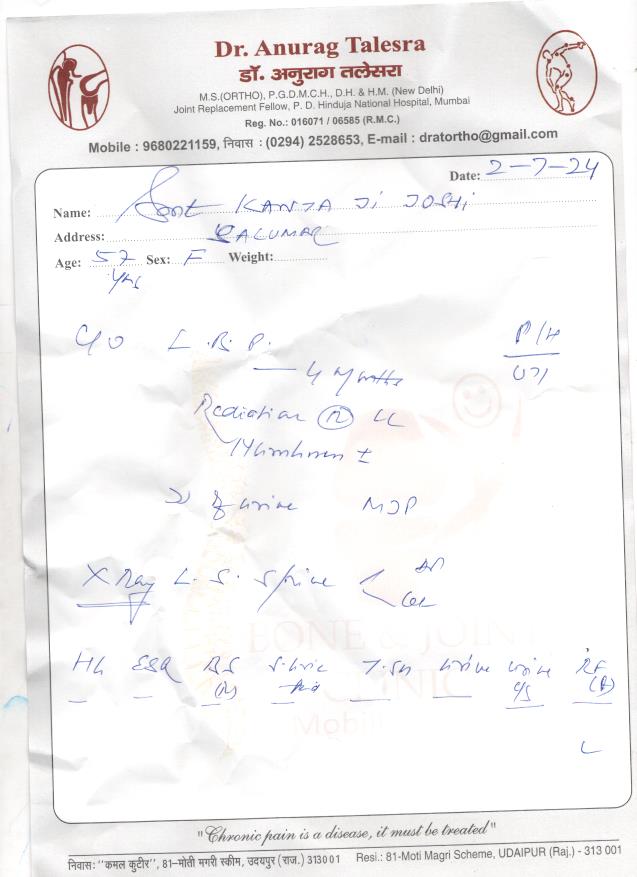 Dr. Anurag Talesra
डॉ. अनुराग तलेसरा
M.S.(ORTHO), P.G.D.M.C.H., D.H. & H.M. (New Delhi)
Joint Replacement Fellow, P. D. Hinduja National Hospital, Mumbai
Reg. No.: 016071 / 06585 (R.M.C.)
Mobile : 9680221159, निवास : (0294) 2528653, E-mail : dratortho@gmail.com
Date: 2-7-24
Name: KANTA Ji JOSHi
Address: SALUMBER
Age: 57 yrs Sex: F Weight:
C/O L.B.P. P/H
— 4 months
Radiation (R) LL
±
urine
X Ray L.S. Spine < AP
Hb ESR BS S.Uric T.SH urine urine RF
(R) Acid C/S
BONE & JOINT
CLINIC
Mobil
"Chronic pain is a disease, it must be treated"
निवास: "कमल कुटीर", 81-मोती मगरी स्कीम, उदयपुर (राज.) 313001 Resi.: 81-Moti Magri Scheme, UDAIPUR (Raj.) - 313 001